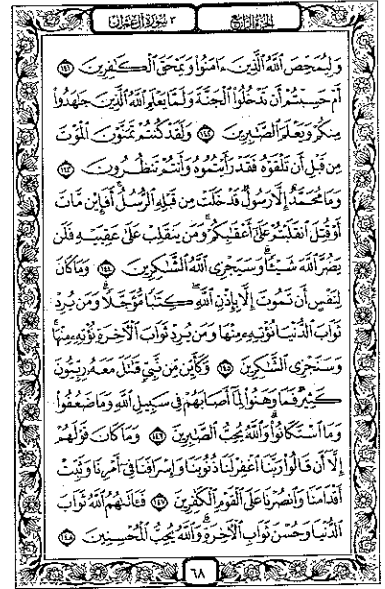 الجزء الرابع ٣ سورة آل عمران
وَلِيُمَحِّصَ ٱللَّهُ ٱلَّذِينَ ءَامَنُوا۟ وَيَمْحَقَ ٱلْكَـٰفِرِينَ ١٤١
أَمْ حَسِبْتُمْ أَن تَدْخُلُوا۟ ٱلْجَنَّةَ وَلَمَّا يَعْلَمِ ٱللَّهُ ٱلَّذِينَ جَـٰهَدُوا۟
مِنكُمْ وَيَعْلَمَ ٱلصَّـٰبِرِينَ ١٤٢ وَلَقَدْ كُنتُمْ تَمَنَّوْنَ ٱلْمَوْتَ
مِن قَبْلِ أَن تَلْقَوْهُ فَقَدْ رَأَيْتُمُوهُ وَأَنتُمْ تَنظُرُونَ ١٤٣
وَمَا مُحَمَّدٌ إِلَّا رَسُولٌ قَدْ خَلَتْ مِن قَبْلِهِ ٱلرُّسُلُ ۚ أَفَإِي۟ن مَّاتَ
أَوْ قُتِلَ ٱنقَلَبْتُمْ عَلَىٰٓ أَعْقَـٰبِكُمْ ۚ وَمَن يَنقَلِبْ عَلَىٰ عَقِبَيْهِ فَلَن
يَضُرَّ ٱللَّهَ شَيْـًٔا ۗ وَسَيَجْزِى ٱللَّهُ ٱلشَّـٰكِرِينَ ١٤٤ وَمَا كَانَ
لِنَفْسٍ أَن تَمُوتَ إِلَّا بِإِذْنِ ٱللَّهِ كِتَـٰبًا مُّؤَجَّلًا ۗ وَمَن يُرِدْ
ثَوَابَ ٱلدُّنْيَا نُؤْتِهِۦ مِنْهَا وَمَن يُرِدْ ثَوَابَ ٱلْـَٔاخِرَةِ نُؤْتِهِۦ مِنْهَا ۚ
وَسَنَجْزِى ٱلشَّـٰكِرِينَ ١٤٥ وَكَأَيِّن مِّن نَّبِىٍّ قَـٰتَلَ مَعَهُۥ رِبِّيُّونَ
كَثِيرٌ فَمَا وَهَنُوا۟ لِمَآ أَصَابَهُمْ فِى سَبِيلِ ٱللَّهِ وَمَا ضَعُفُوا۟
وَمَا ٱسْتَكَانُوا۟ ۗ وَٱللَّهُ يُحِبُّ ٱلصَّـٰبِرِينَ ١٤٦ وَمَا كَانَ قَوْلَهُمْ
إِلَّآ أَن قَالُوا۟ رَبَّنَا ٱغْفِرْ لَنَا ذُنُوبَنَا وَإِسْرَافَنَا فِىٓ أَمْرِنَا وَثَبِّتْ
أَقْدَامَنَا وَٱنصُرْنَا عَلَى ٱلْقَوْمِ ٱلْكَـٰفِرِينَ ١٤٧ فَـَٔاتَىٰهُمُ ٱللَّهُ ثَوَابَ
ٱلدُّنْيَا وَحُسْنَ ثَوَابِ ٱلْـَٔاخِرَةِ ۗ وَٱللَّهُ يُحِبُّ ٱلْمُحْسِنِينَ ١٤٨
٦٨